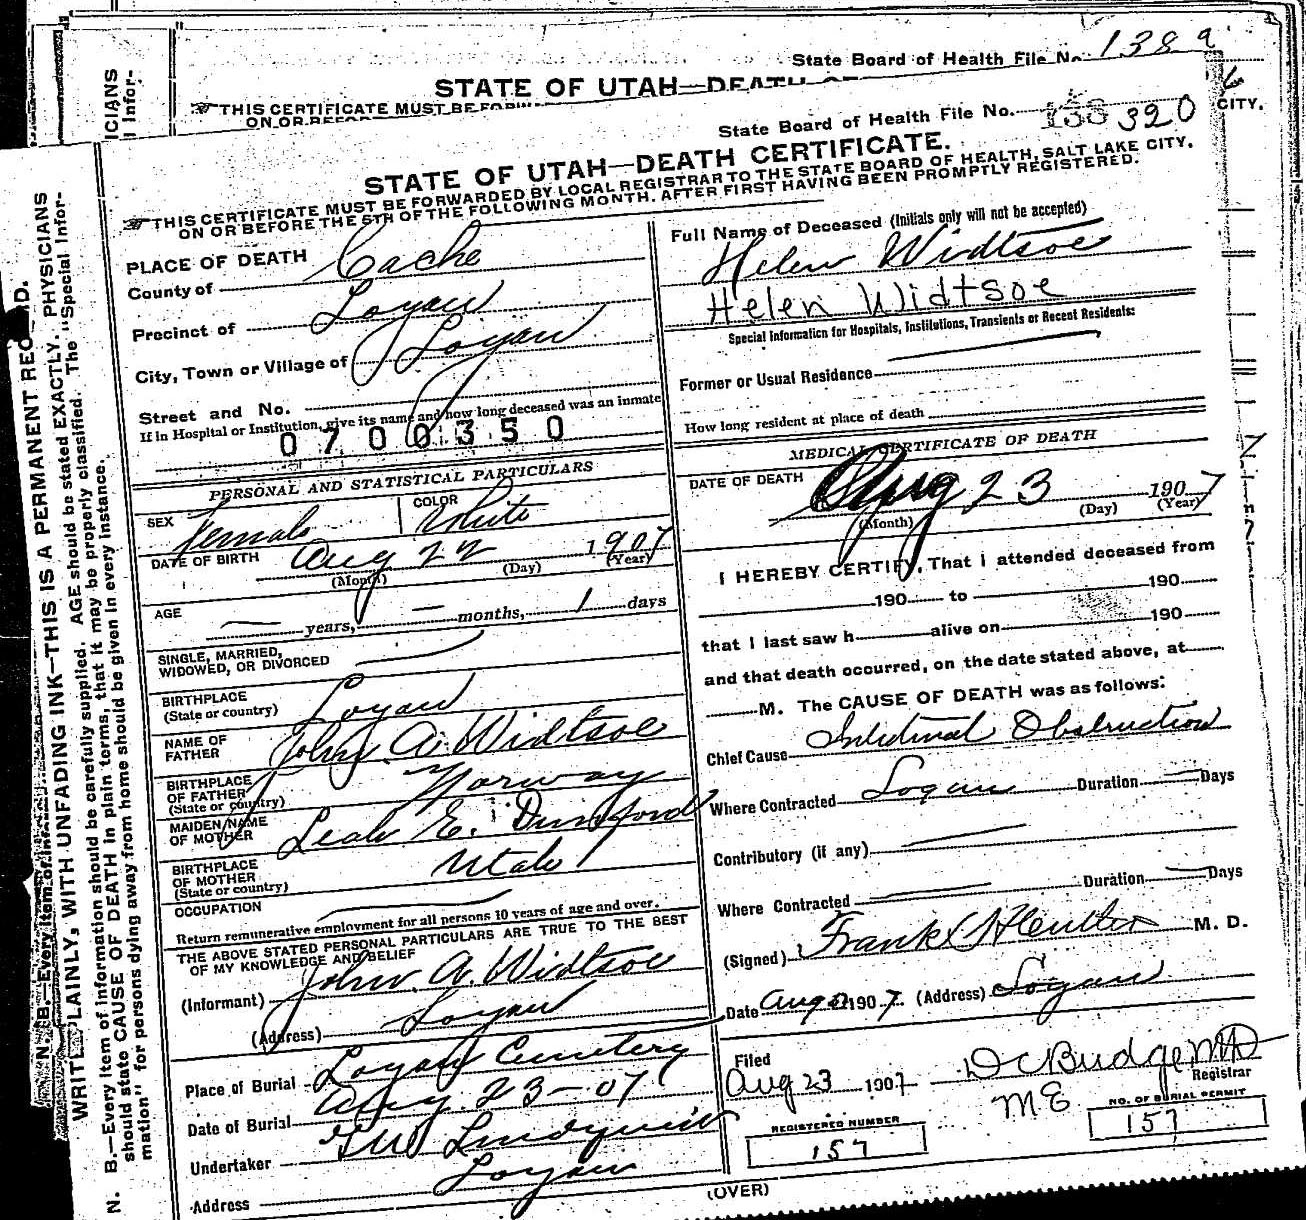 State Board of Health File No. 138 a
STATE OF UTAH—DEATH
THIS CERTIFICATE MUST BE
ON OR BEFORE
CITY.
ICIANS
State Board of Health File No. 138 320
STATE OF UTAH—DEATH CERTIFICATE.
THIS CERTIFICATE MUST BE FORWARDED BY LOCAL REGISTRAR TO THE STATE BOARD OF HEALTH, SALT LAKE CITY,
ON OR BEFORE THE 5TH OF THE FOLLOWING MONTH. AFTER FIRST HAVING BEEN PROMPTLY REGISTERED.
PLACE OF DEATH
County of Cache
Precinct of Logan
City, Town or Village of Logan
Street and No.
If in Hospital or Institution, give its name and how long deceased was an inmate
0700350
PERSONAL AND STATISTICAL PARTICULARS
SEX Female COLOR White
DATE OF BIRTH Aug 22 1907
(Month) (Day) (Year)
AGE — years, — months, 1 days
SINGLE, MARRIED,
WIDOWED, OR DIVORCED
BIRTHPLACE
(State or country) Logan
NAME OF
FATHER John A. Widtsoe
BIRTHPLACE
OF FATHER
(State or country) Norway
MAIDEN NAME
OF MOTHER Leah E. Dunford
BIRTHPLACE
OF MOTHER
(State or country) Utah
OCCUPATION
Return remunerative employment for all persons 10 years of age and over.
THE ABOVE STATED PERSONAL PARTICULARS ARE TRUE TO THE BEST
OF MY KNOWLEDGE AND BELIEF
(Informant) John A. Widtsoe
(Address) Logan
Place of Burial Logan Cemetery
Date of Burial Aug. 23-07
Undertaker Lindquist
Address Logan
Full Name of Deceased (Initials only will not be accepted)
Helen Widtsoe
Helen Widtsoe
Special Information for Hospitals, Institutions, Transients or Recent Residents:
Former or Usual Residence
How long resident at place of death
MEDICAL CERTIFICATE OF DEATH
DATE OF DEATH Aug 23 1907
(Month) (Day) (Year)
I HEREBY CERTIFY, That I attended deceased from
190 to 190
that I last saw h alive on 190
and that death occurred, on the date stated above, at
M. The CAUSE OF DEATH was as follows:
Chief Cause Intestinal Obstruction
Where Contracted Logan Duration — Days
Contributory (if any) —
Where Contracted — Duration — Days
(Signed) Frank M. D.
Date Aug 1907. (Address) Logan
Filed
Aug 23 1907 D C Budge, MD
Registrar
ME
REGISTERED NUMBER
157
NO. OF BURIAL PERMIT
157
(OVER)
WRITE PLAINLY, WITH UNFADING INK—THIS IS A PERMANENT RECORD.
N. B.—Every item of information should be carefully supplied. AGE should be stated EXACTLY. PHYSICIANS
should state CAUSE OF DEATH in plain terms, that it may be properly classified. The "Special Infor-
mation" for persons dying away from home should be given in every instance.